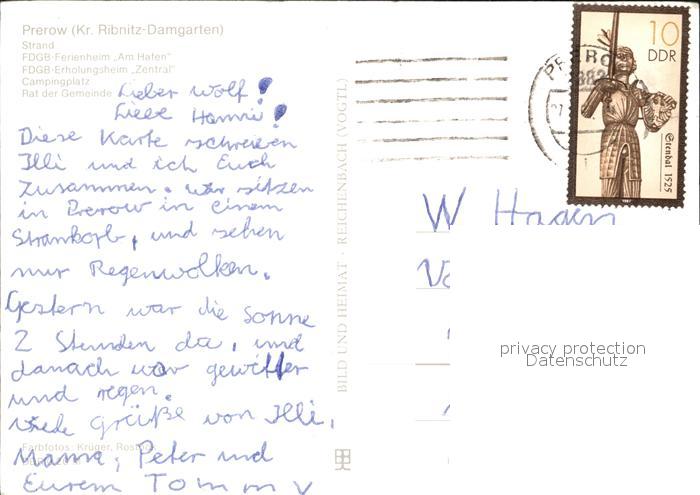 Prerow (Kr. Ribnitz-Damgarten)
Strand
FDGB-Ferienheim „Am Hafen"
FDGB-Erholungsheim „Zentral"
Campingplatz
Rat der Gemeinde
Lieber Wolf!
Liebe Hanni!
Diese Karte schreiben
Illi und ich Euch
Zusammen. wir sitzen
in Prerow in einem
Strankorb, und sehen
nur Regenwolken.
Gestern war die Sonne
2 Stunden da, und
danach war gewitter
und regen.
viele Grüße von Illi,
Mama, Peter und
Eurem Tommy
Farbfotos: Krüger, Rostock
BILD UND HEIMAT · REICHENBACH (VOGTL)
10
DDR
Stendal 1525
W Hagen
privacy protection
Datenschutz